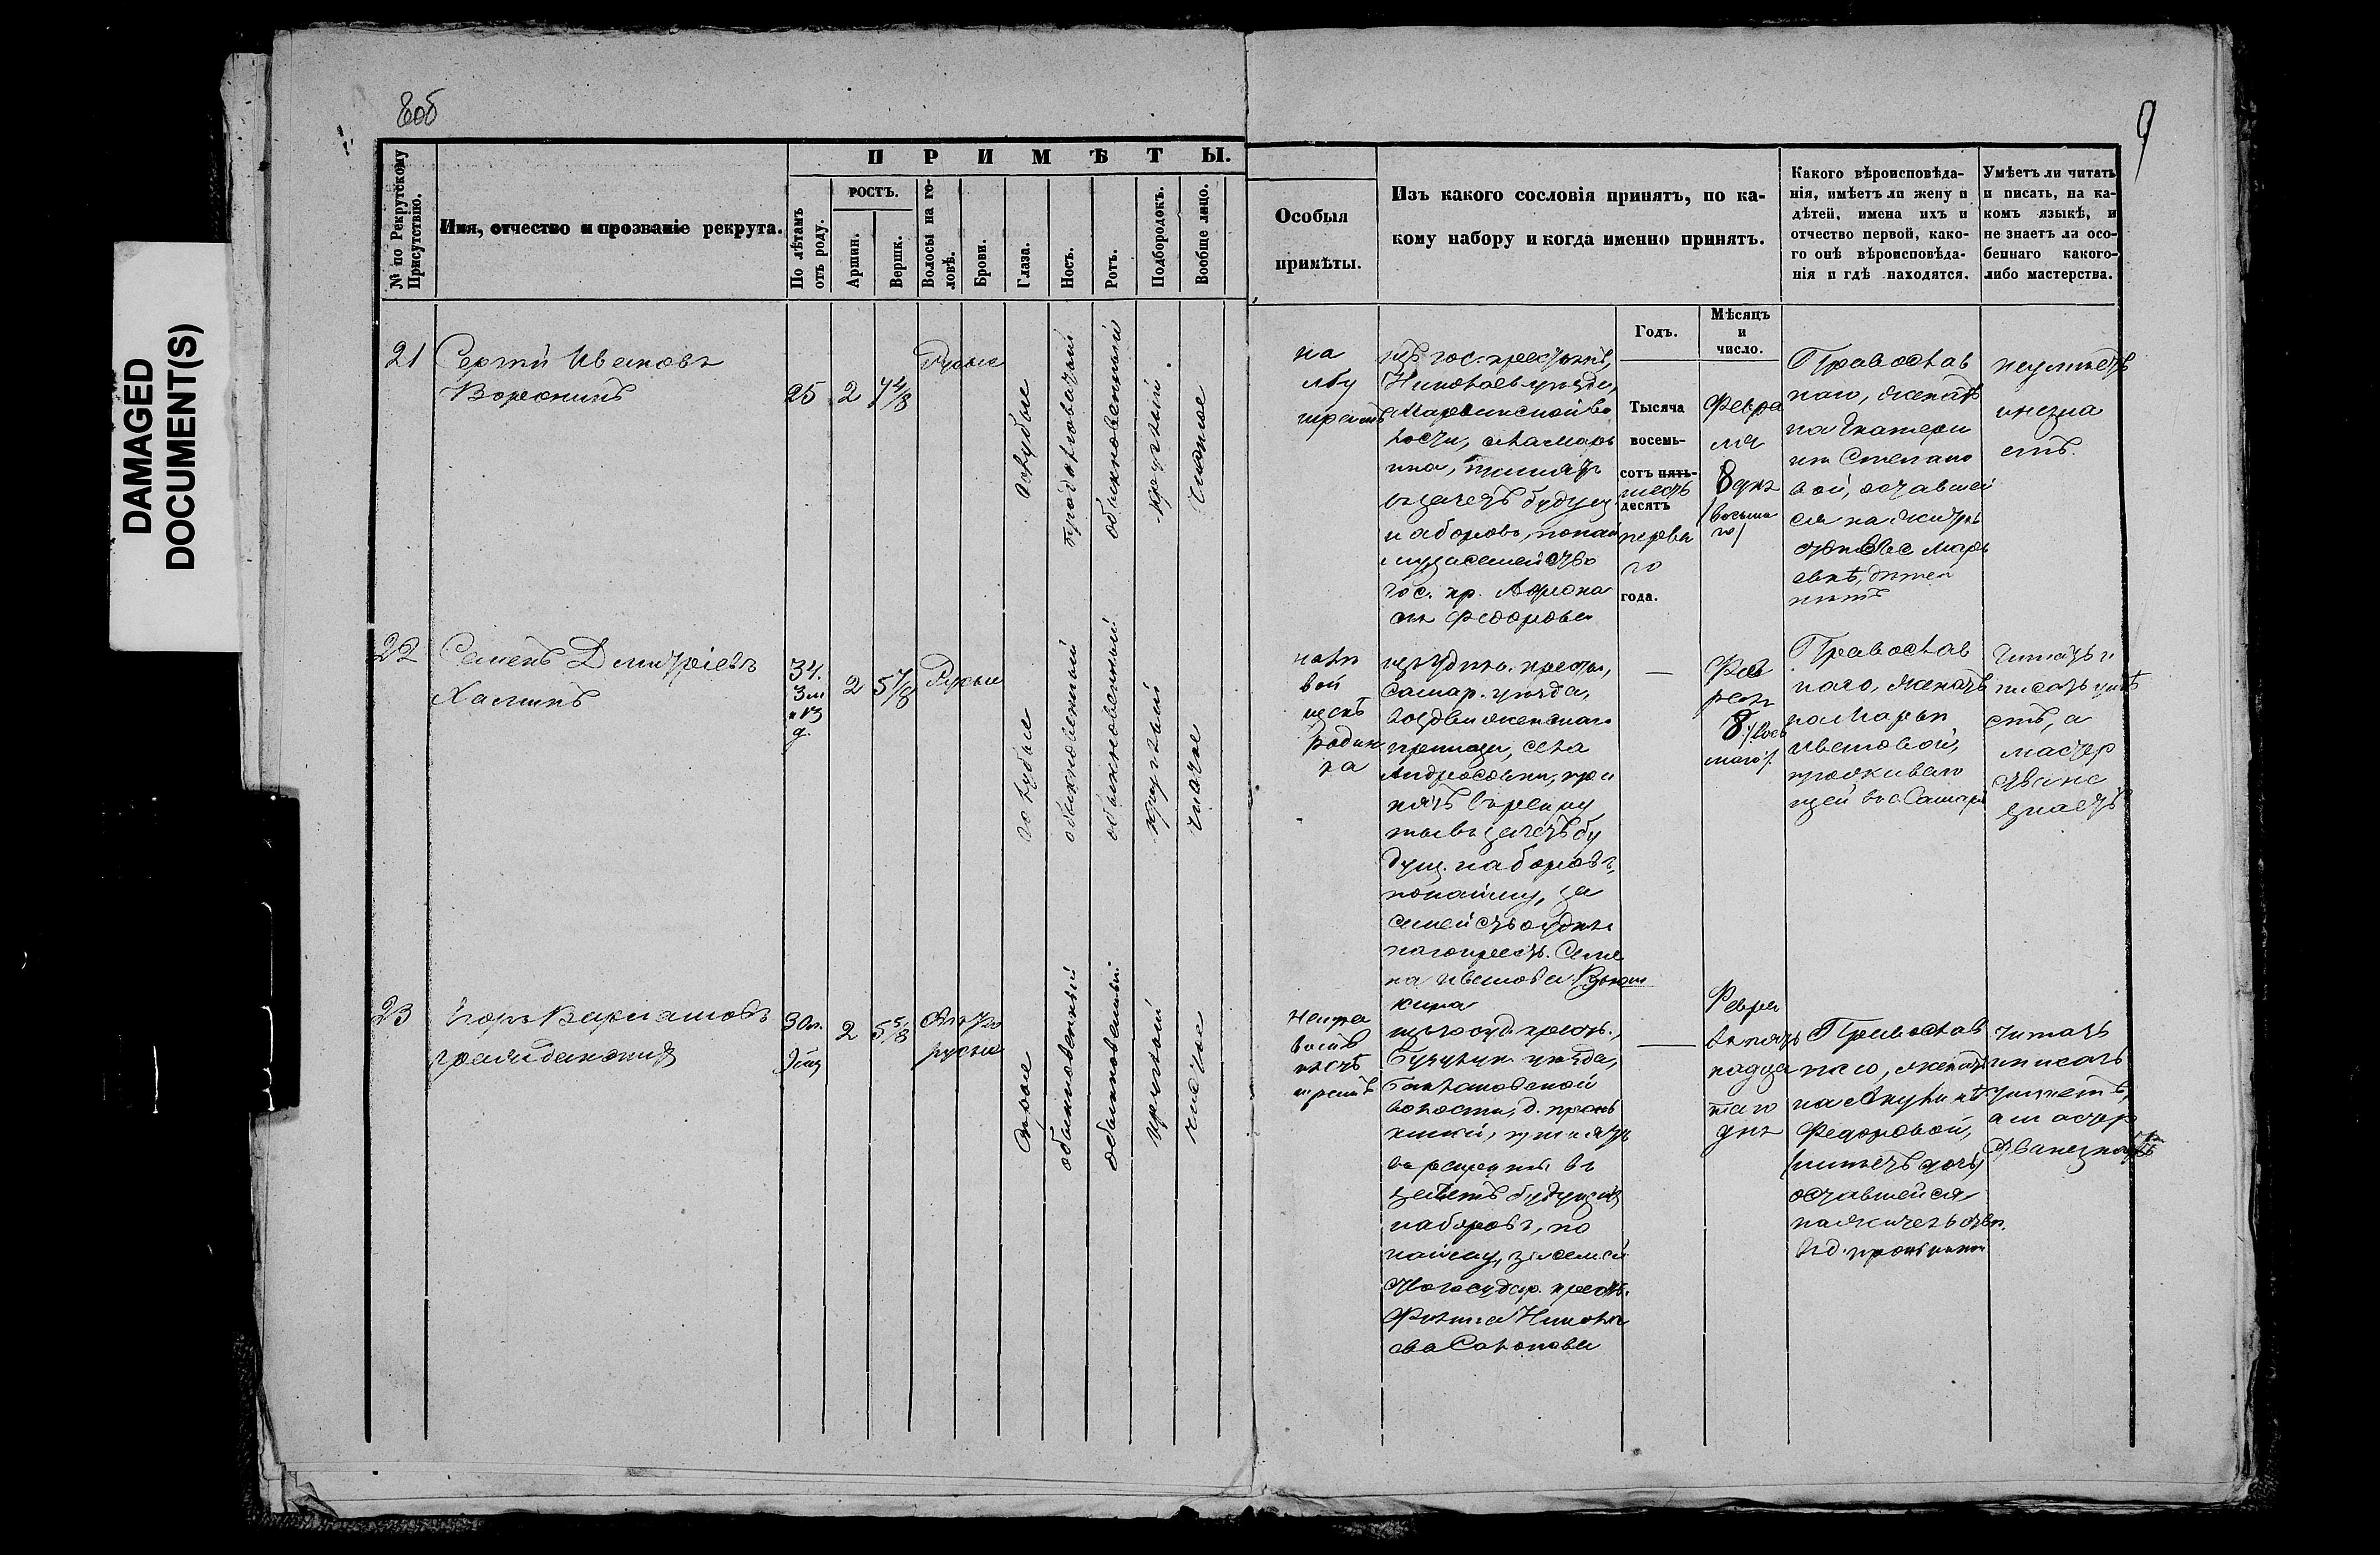 DAMAGED
DOCUMENT(S)
8 об
9
№ по Рекрутскому
Присутствію.
Имя, отчество и прозваніе рекрута.
ПРИМѢТЫ.
По лѣтамъ
отъ роду.
РОСТЪ.
Аршин.
Вершк.
Волосы на го-
ловѣ.
Брови.
Глаза.
Носъ.
Ротъ.
Подбородокъ.
Вообще лицо.
Особыя
примѣты.
Изъ какого сословія принятъ, по ка-
кому набору и когда именно принятъ.
Какого вѣроисповѣда-
нія, имѣетъ ли жену и
дѣтей, имена ихъ и
отчество первой, како-
го онѣ вѣроисповѣда-
нія и гдѣ находятся.
Умѣетъ ли читать
и писать, на ка-
комъ языкѣ, и
не знаетъ ли осо-
беннаго какого-
либо мастерства.
Годъ.
Мѣсяцъ
и
число.
21
Сергѣй Ивановъ
Воронинъ
25
2
7 4/8
Русые
голубые
продолговатый
обыкновенный
круглый
чистое
на
лбу
шрамъ
изъ гос. крестьянъ,
Николаев. уѣзда,
Марьинской во
лости, села Марь
ина, принятъ
въ зачетъ будущ.
наборовъ, по най
му за семейство
гос. кр.
Федорова
Тысяча
восемь-
сотъ пять-
шесть
десятъ
перва
го
года.
Февра
ля
8 дня
/восьма
го/
Православ
наго, женатъ
на Екатери
нѣ Степано
вой, оставшей
ся на житель
ствѣ въ с. Марь
евкѣ, дѣтей
нѣтъ
неумѣетъ
и незна
етъ.
22
Семенъ Дмитріевъ
Халинъ
34.
3 м
и 13
д.
2
5 7/8
Русые
голубые
обыкновенный
обыкновенный
круглый
чистое
на лѣ
вой
щекѣ
родин
ка
изъ удѣльн. крестьян,
Самар. уѣзда,
Воздвиженскаго
приказа, села
Андросовки, при
нятъ въ рекру
ты въ зачетъ бу
дущ. наборовъ,
по найму, за
семейство удѣль
наго крест. Семе
на Иванова
кина
—
Фев
раля
8 /вось
маго/
Православ
наго, женатъ
на Марьѣ
Ивановой,
проживаю
щей въ с. Самарѣ
Читать и
писать умѣ
етъ, а
мастер
ства не
знаетъ
23
Егоръ Варламовъ
30 л.
2
5 5/8
свѣтло
русые
сѣрые
обыкновенный
обыкновенный
круглый
чистое
На пра
вой
шрамъ
изъ госуд. крест.,
Бузулук. уѣзда,
волости, д. Пронь
киной, принятъ
въ рекруты въ
зачетъ будущихъ
наборовъ, по
найму, за семей
ство государ. крест.
Филипа Николае
ва Сапонова
—
Февра
ля пят
надца
таго
дня
Православ
наго, женатъ
на Акулинѣ
Федоровой,
имѣетъ дочь,
оставшейся
на жительствѣ
въ д. Пронькиной
Читать
и писать
умѣетъ,
а мастер
ства незнаетъ